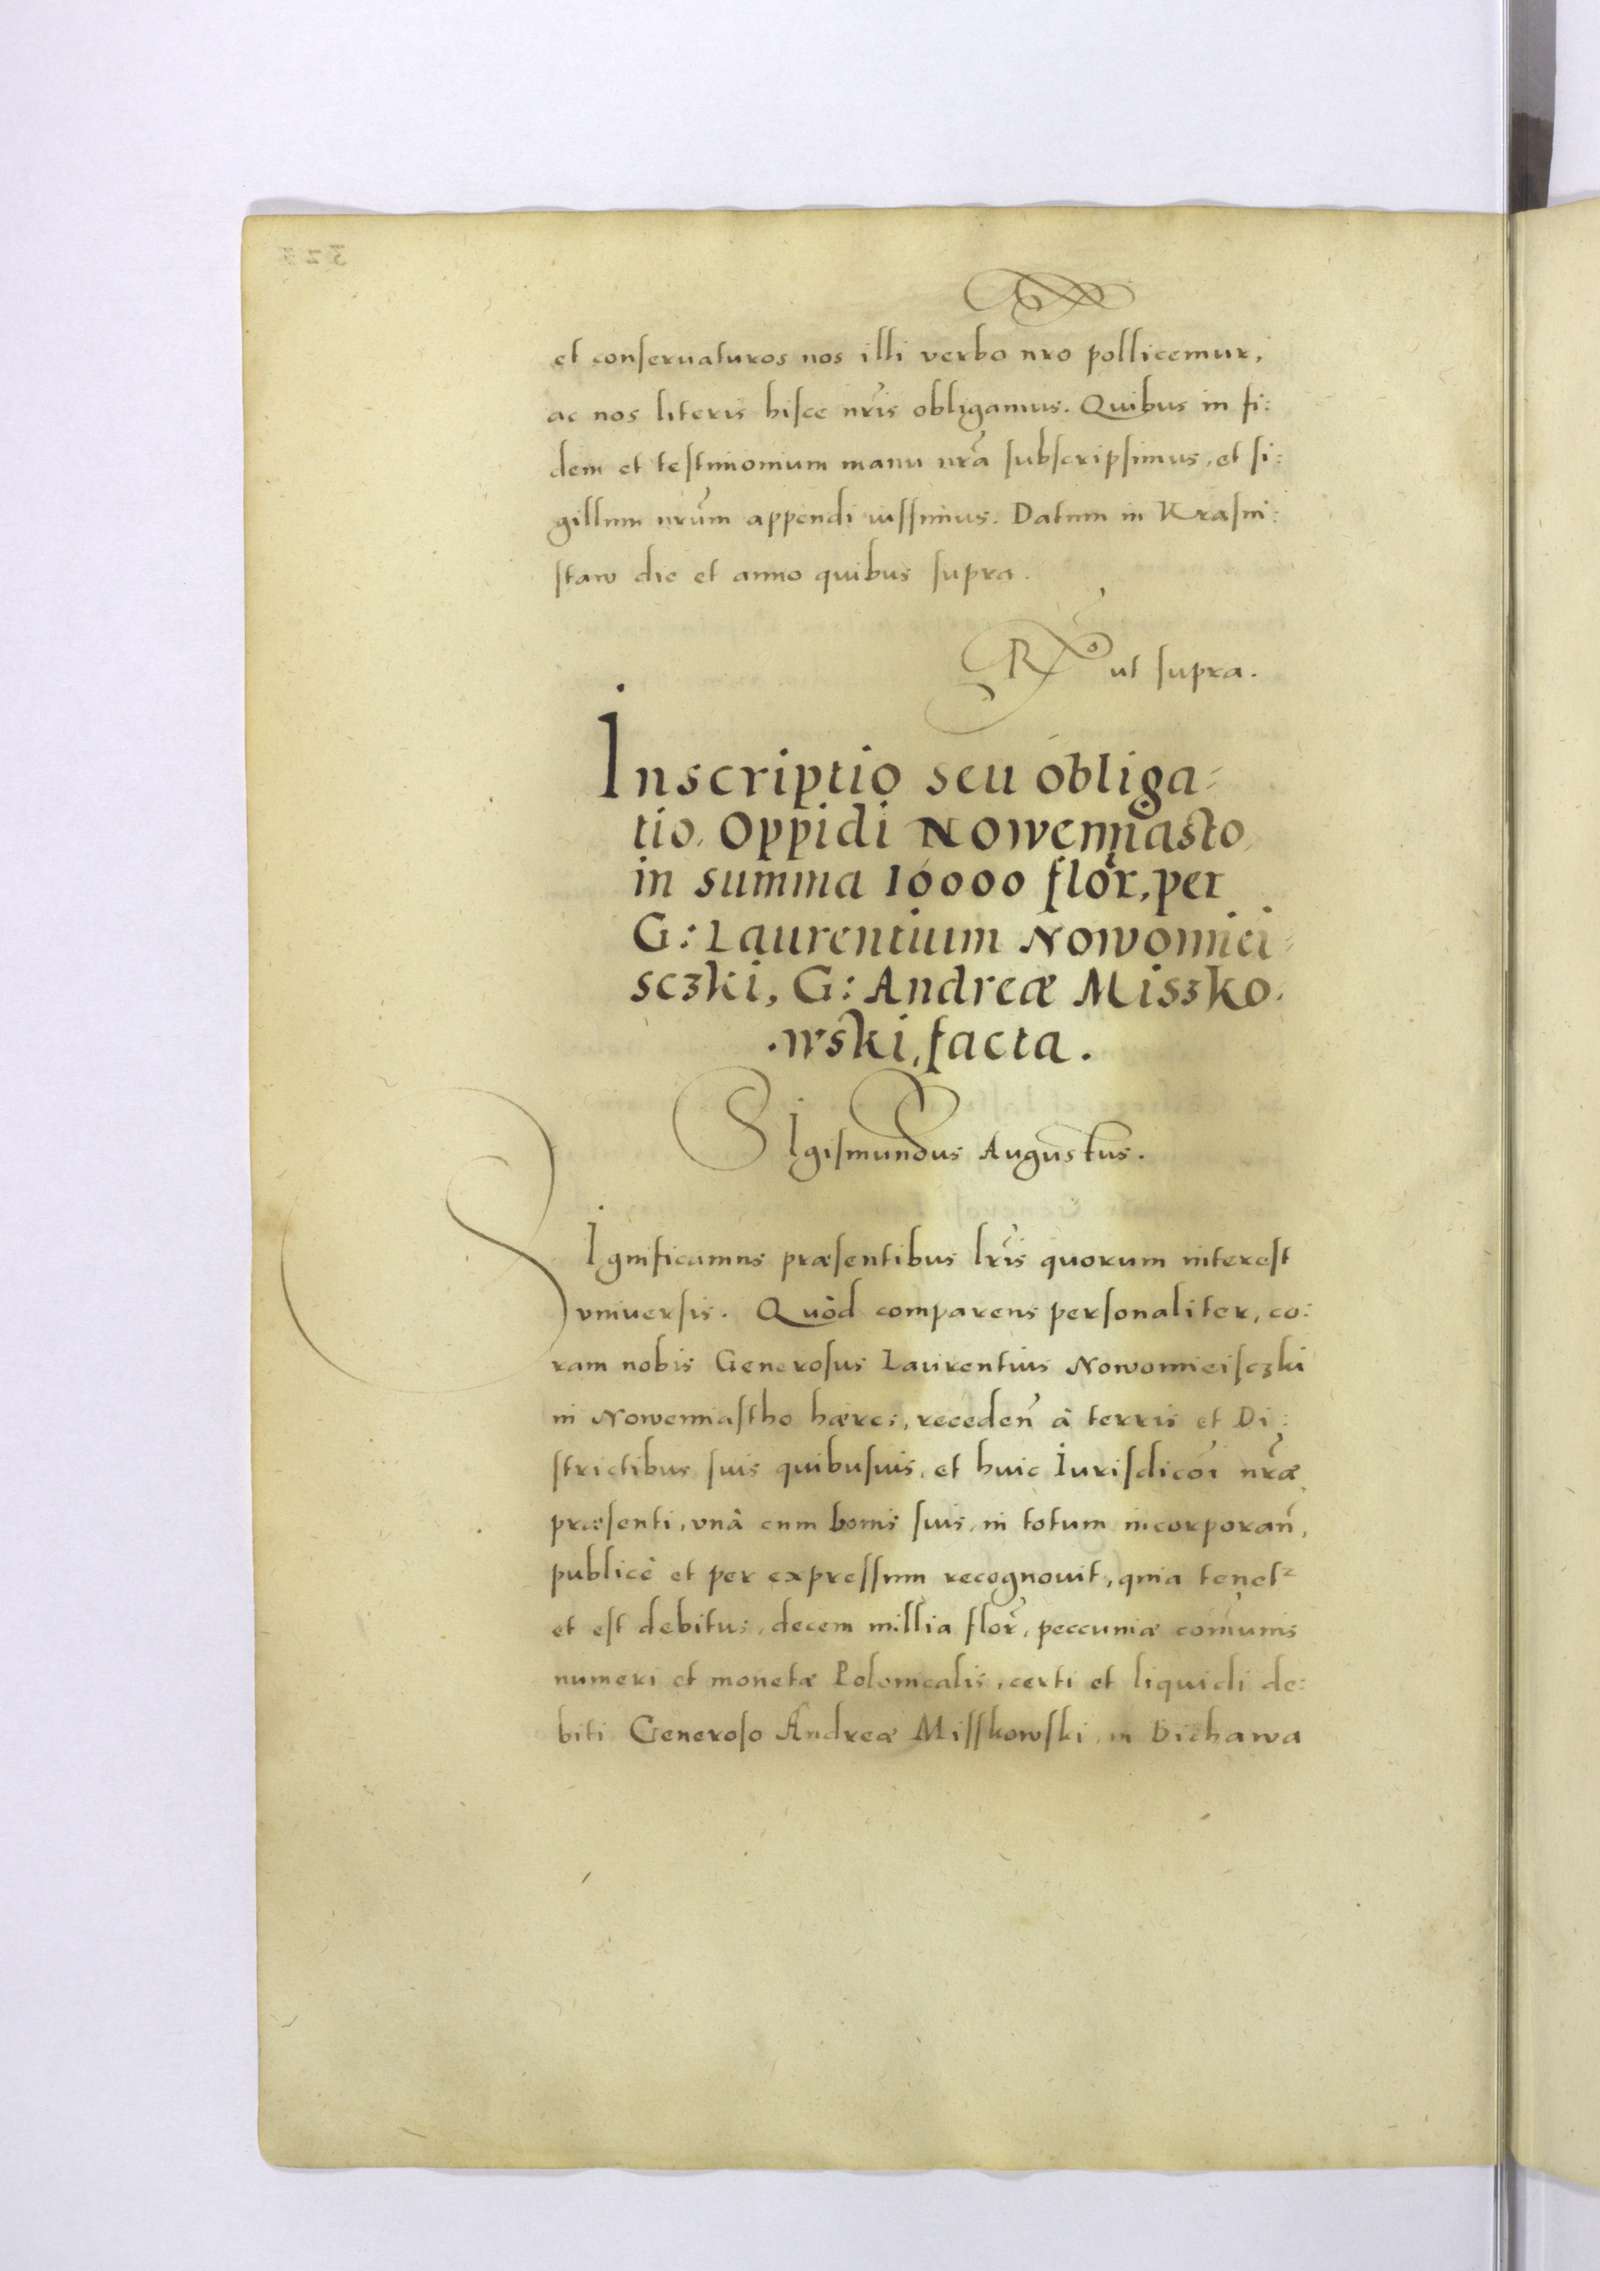 et conseruaturos nos illi verbo nro pollicemur,
ac nos literis hisce nr̃is obligamus. Quibus in fi:
dem et testimonium manu nrã subscripsimus, et si:
gillum nrũm appendi iussimus. Datum in Krasni:
staw die et anno quibus supra.
R ut supra.
Inscriptio seu obliga-
tio, Oppidi Nowemiasto,
in summa 10000 flor̃, per
G: Laurentium Nowomiei-
sczki, G: Andreæ Miszko.
.wski, facta.
SIgismundus Augustus.
SIgnificamus præsentibus lr̃is quorum interest
vniuersis. Quòd comparens personaliter, co:
ram nobis Generosus Laurentius Nowomieisczki
in Nowemiastho hæres, receden̄ à terris et Di:
strictibus suis quibusuis, et huic Iurisdicōi nrãe
præsenti, vnà cum bonis suis, in totum incorporan̄,
publicè et per expressum recognouit, quia tenet²
et est debitus, decem millia flor̃, peccuniæ com̃unis
numeri et monetæ Polonicalis, certi et liquidi de:
biti Generoso Andreæ Misskowski, in Bichawa